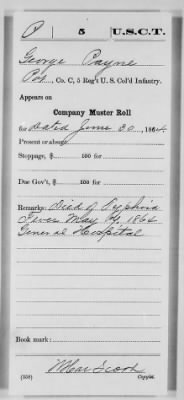 P 5 U.S.C.T.
George Payne
Pvt, Co. C, 5 Reg't U. S. Col'd Infantry.
Appears on
Company Muster Roll
for Dated June 30, 1864.
Present or absent
Stoppage, $ 100 for
Due Gov't, $ 100 for
Remarks: Died of Typhoid
Fever May 14, 1864
General Hospital
Book mark:
(358) Copyist.